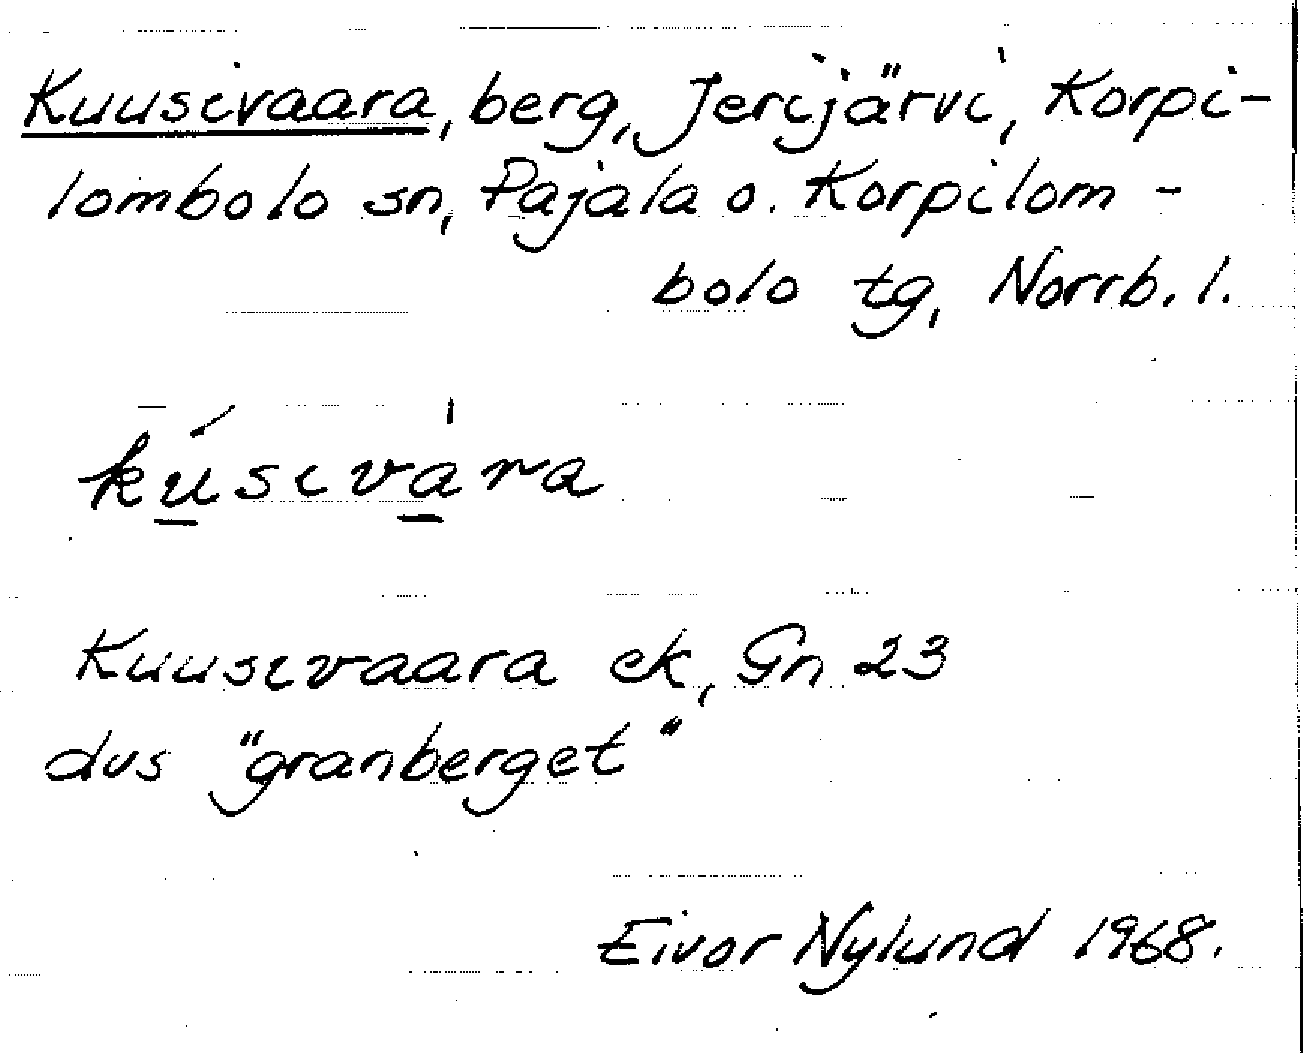 Kuusivaara, berg, Jerijärvi, Korpi-
lombolo sn, Pajala o. Korpilom-
bolo tg, Norrb. l.
kú̱siva̱̍ra
Kuusivaara ek, Gn 23
dvs "granberget"
Eivor Nylund 1968.